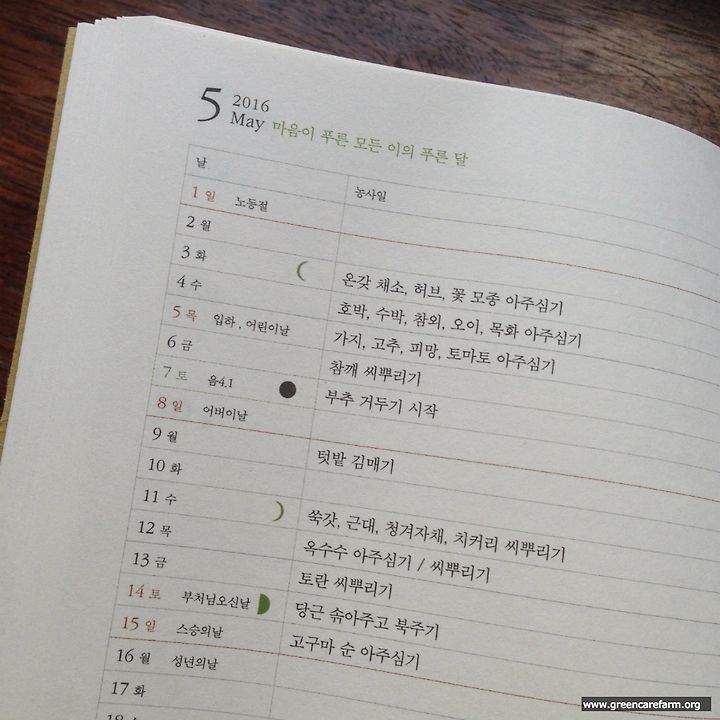 5 2016
May 마음이 푸른 모든 이의 푸른 달
날 농사일
1 일 노동절
2 월
3 화 온갖 채소, 허브, 꽃 모종 아주심기
4 수 호박, 수박, 참외, 오이, 목화 아주심기
5 목 입하, 어린이날 가지, 고추, 피망, 토마토 아주심기
6 금 참깨 씨뿌리기
7 토 음4.1 부추 거두기 시작
8 일 어버이날
9 월 텃밭 김매기
10 화
11 수 쑥갓, 근대, 청겨자채, 치커리 씨뿌리기
12 목 옥수수 아주심기 / 씨뿌리기
13 금 토란 씨뿌리기
14 토 부처님오신날 당근 솎아주고 북주기
15 일 스승의날 고구마 순 아주심기
16 월 성년의날
17 화
www.greencarefarm.org